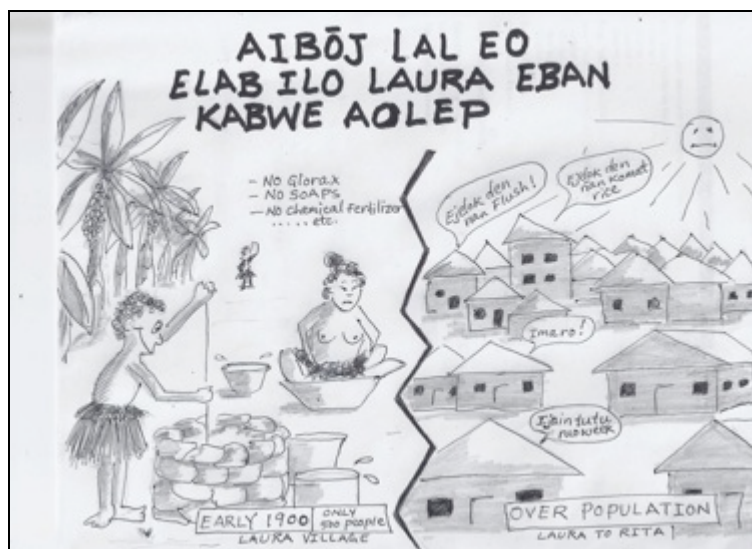 AIBŌJ LAL EO
ELAB ILO LAURA EBAN
KABWE AOLEP
- NO Glorax
- NO SOAPS
- NO Chemical Fertilizer
..... etc.
Ejelok den
nan Flush!
Ejelok den
nan Komat
rice
Imaro!
Ijain tutu
week
EARLY 1900
ONLY
500 people
LAURA VILLAGE
OVER POPULATION
LAURA TO RITA!